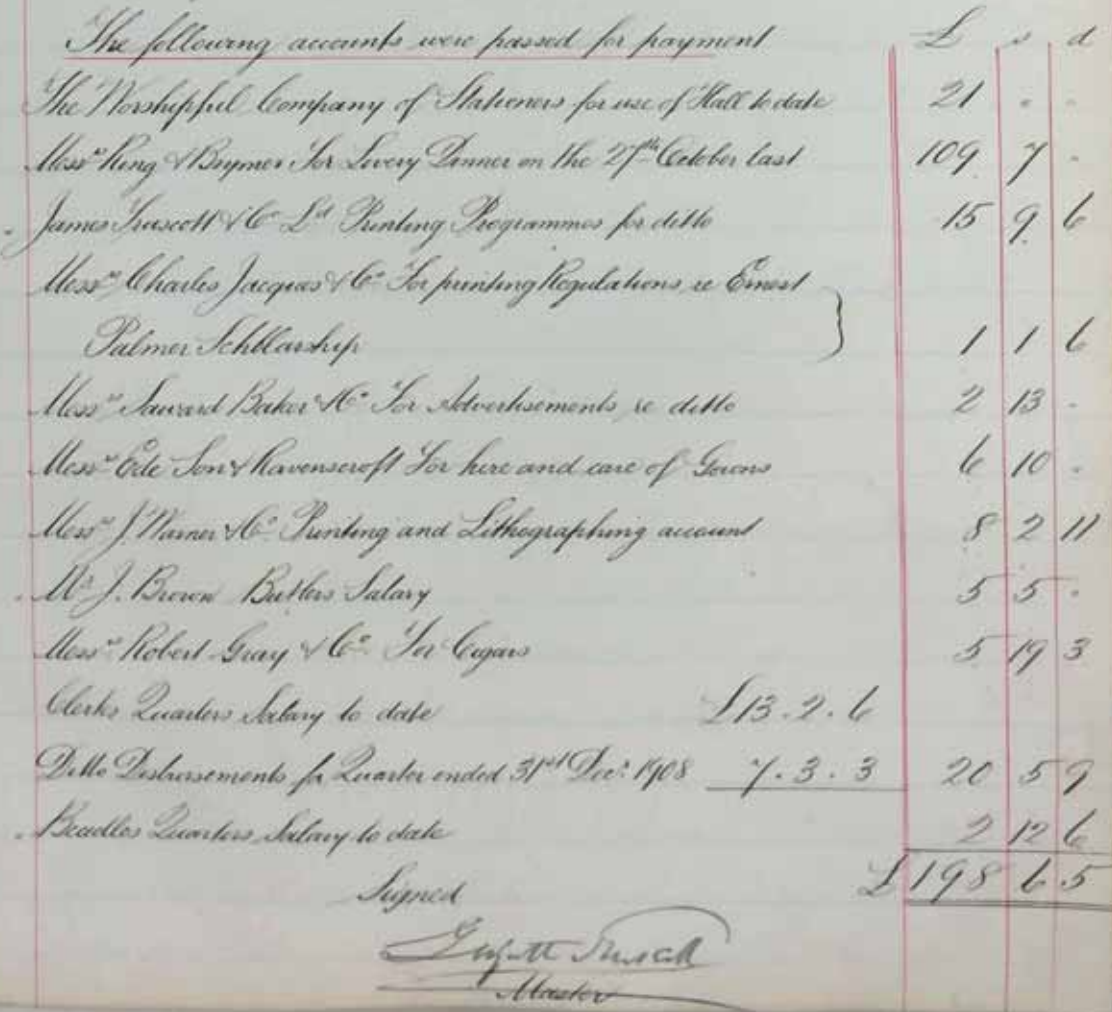 The following accounts were passed for payment £ s d
The Worshipful Company of Stationers for use of Hall to date 21 - -
Messrs Ring & Brymer For Livery Dinner on the 27th October last 109 7 -
James Truscott & Co Ld Printing Programmes for ditto 15 9 6
Messrs Charles Jacques & Co For printing Regulations, re Ernest
Palmer Schllarship 1 1 6
Messrs Saward Baker & Co For Advertisements, re ditto 2 13 -
Messrs Ede Son & Ravenscroft For hire and care of Gowns 6 10 -
Messrs J. Warner & Co Printing and Lithographing account 8 2 11
Mr J. Brown Butlers Salary 5 5 -
Messrs Robert Gray & Co For Cigars 5 19 3
Clerks Quarters Salary to date £13.2.6
Ditto Disbursements for Quarter ended 31st Decr 1908 7.3.3 20 5 9
Beadles Quarters Salary to date 2 12 6
£198 6 5
Signed
Truscott
Master